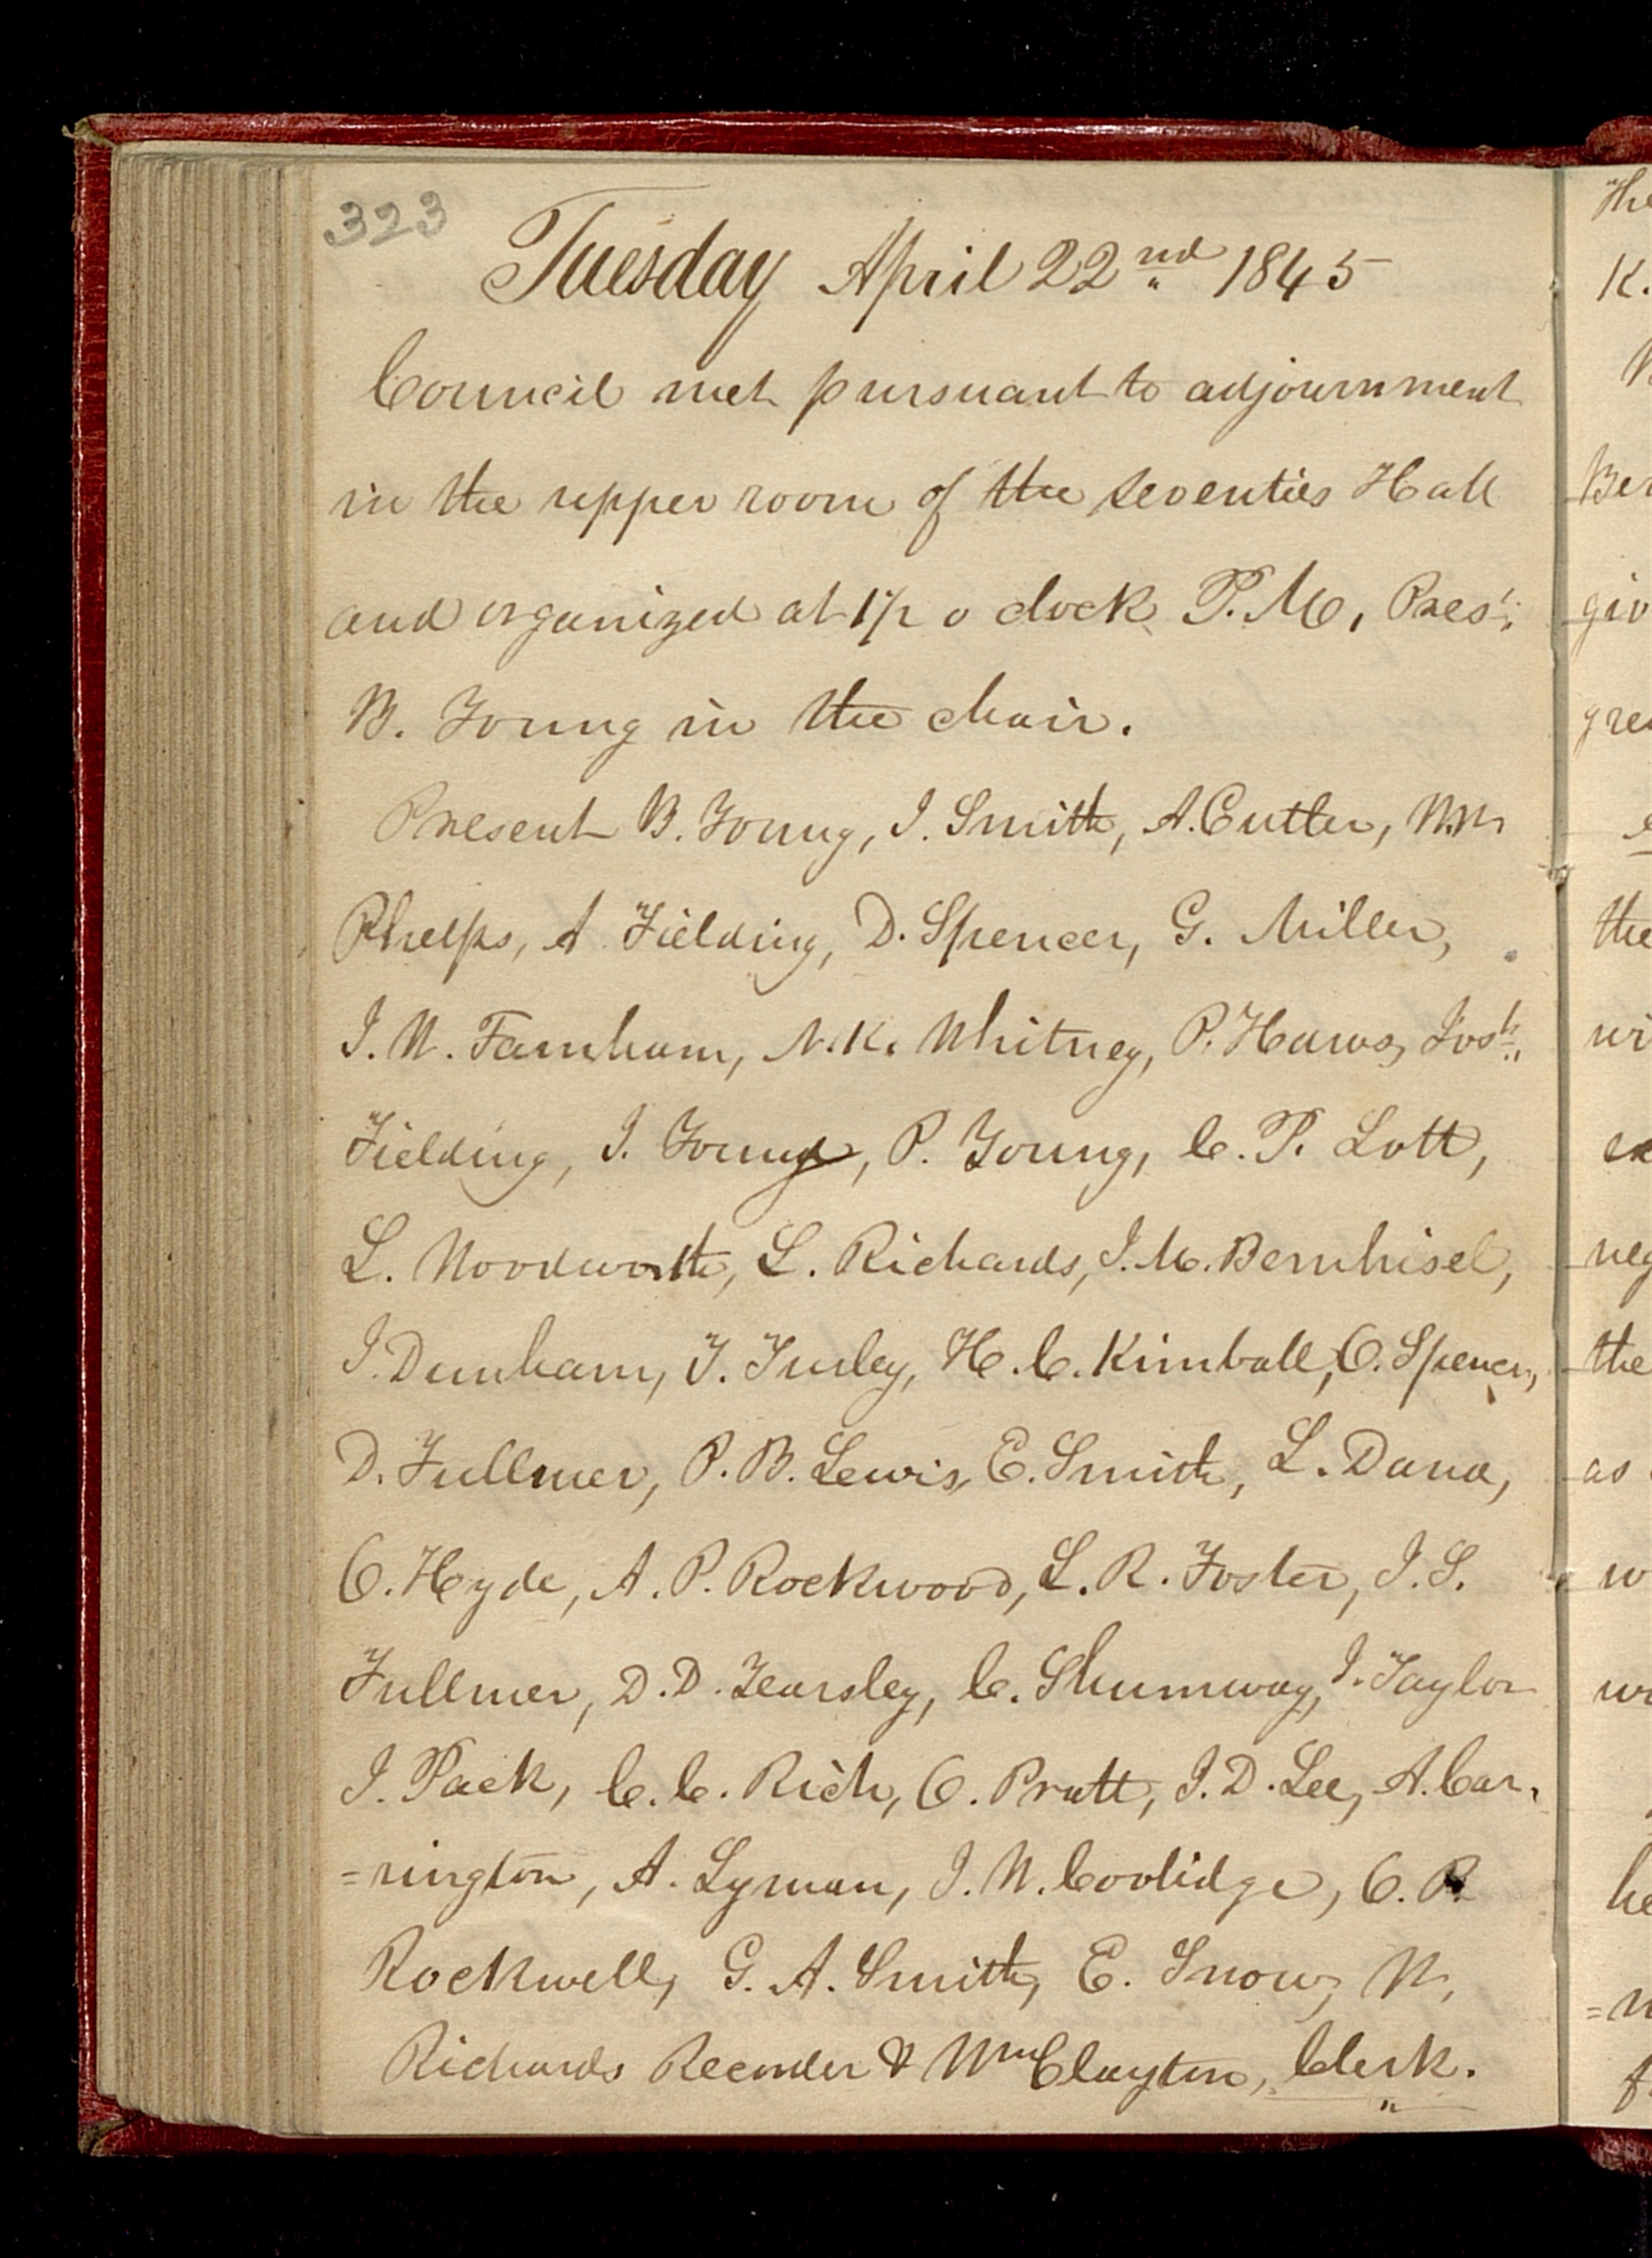 323
Tuesday April 22nd 1845
Council met pursuant to adjournment
in the upper room of the Seventies Hall
and organized at 1/2 o clock P.M, Prest
B. Young in the chair.
Present B. Young, J. Smith, A. Cutler, W.W
Phelps, A Fielding, D. Spencer, G. Miller,
J. W. Farnham, N. K. Whitney, P. Haws, Josh
Fielding, J. Young, P. Young, C. P. Lott,
L. Woodworth, L. Richards, J. M. Bernhisel,
J. Dunham, T. Turley, H. C. Kimball, O. Spencer,
D. Fullmer, P. B. Lewis, E. Smith, L. Dana,
O. Hyde, A. P. Rockwood, L. R. Foster, J. S.
Fullmer, D. D. Yearsley, C. Shumway, J. Taylor
J. Pack, C. C. Rich, O. Pratt, J. D. Lee, A. Car-
=rington, A. Lyman, J. W. Coolidge, O. P.
Rockwell, G. A. Smith, E. Snow, W.
Richards Recorder & Wm Clayton, Clerk.